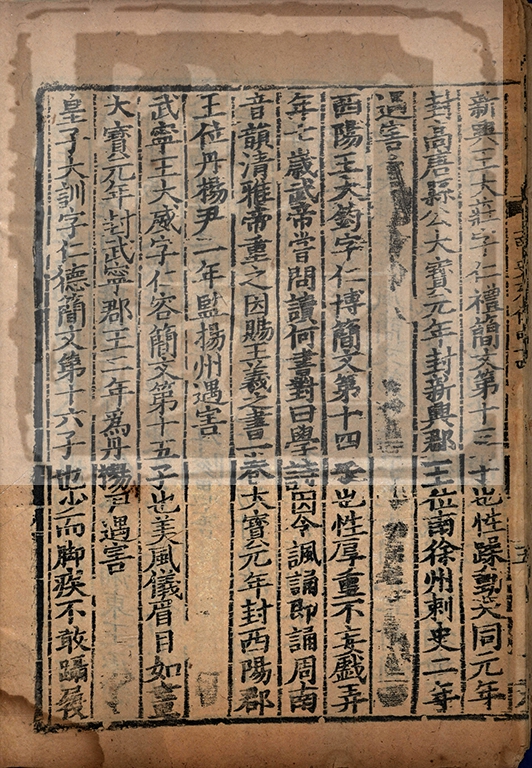 新興王大莊字仁禮簡文第十三子也性躁動大同元年
封高唐縣公大寶元年封新興郡王位南徐州刺史二年
遇害
西陽王大鈞字仁博簡文第十四子也性厚重不妄戲弄
年七歲武帝嘗問讀何書對曰學詩因令諷誦即誦周南
音韻清雅帝重之因賜王羲之書一卷大寶元年封西陽郡
王位丹楊尹二年監揚州遇害
武寧王大威字仁容簡文第十五子也美風儀眉目如畫
大寶元年封武寧郡王二年為丹楊尹遇害
皇子大訓字仁德簡文第十六子也少而脚疾不敢躡履